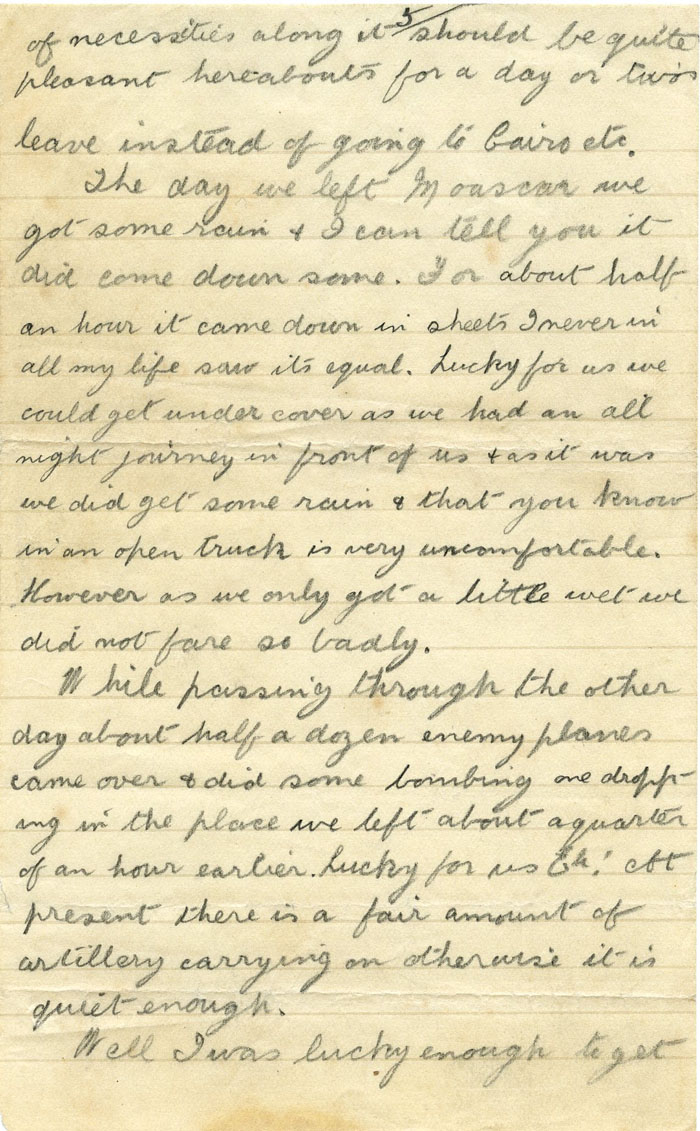 5/
of necessities along it should be quite
pleasant hereabouts for a day or two's
leave instead of going to Cairo etc.
The day we left Moascar we
got some rain & I can tell you it
did come down some. For about half
an hour it came down in sheets I never in
all my life saw its equal. Lucky for us we
could get under cover as we had an all
night journey in front of us & as it was
we did get some rain & that you know
in an open truck is very uncomfortable.
However as we only got a little wet we
did not fare so badly.
While passing through the other
day about half a dozen enemy planes
came over & did some bombing one dropp-
ing in the place we left about a quarter
of an hour earlier. Lucky for us Eh! At
present there is a fair amount of
artillery carrying on otherwise it is
quiet enough.
Well I was lucky enough to get